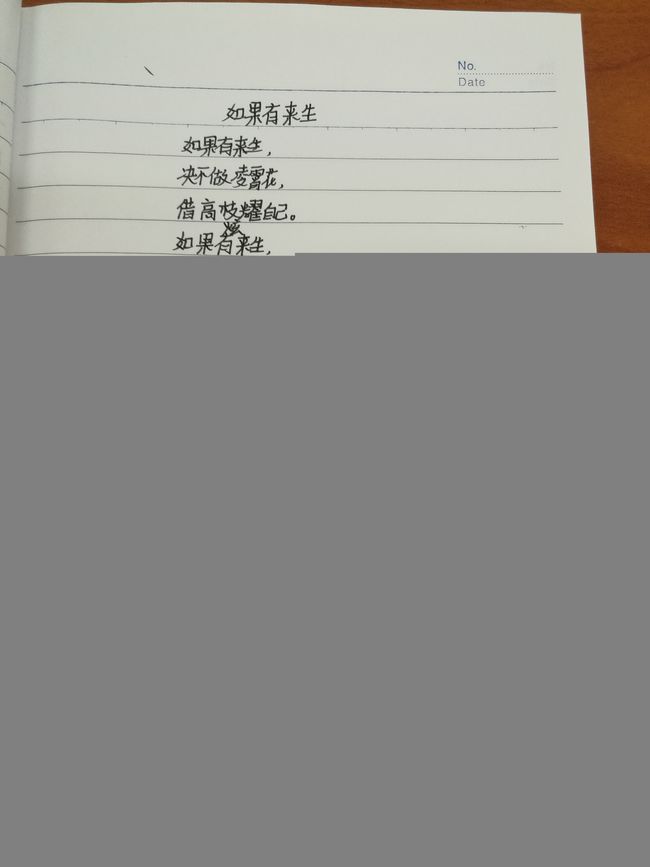 No.
Date
如果有来生
如果有来生,
决不做凌霄花,
借高枝耀自己。
如果有来生,